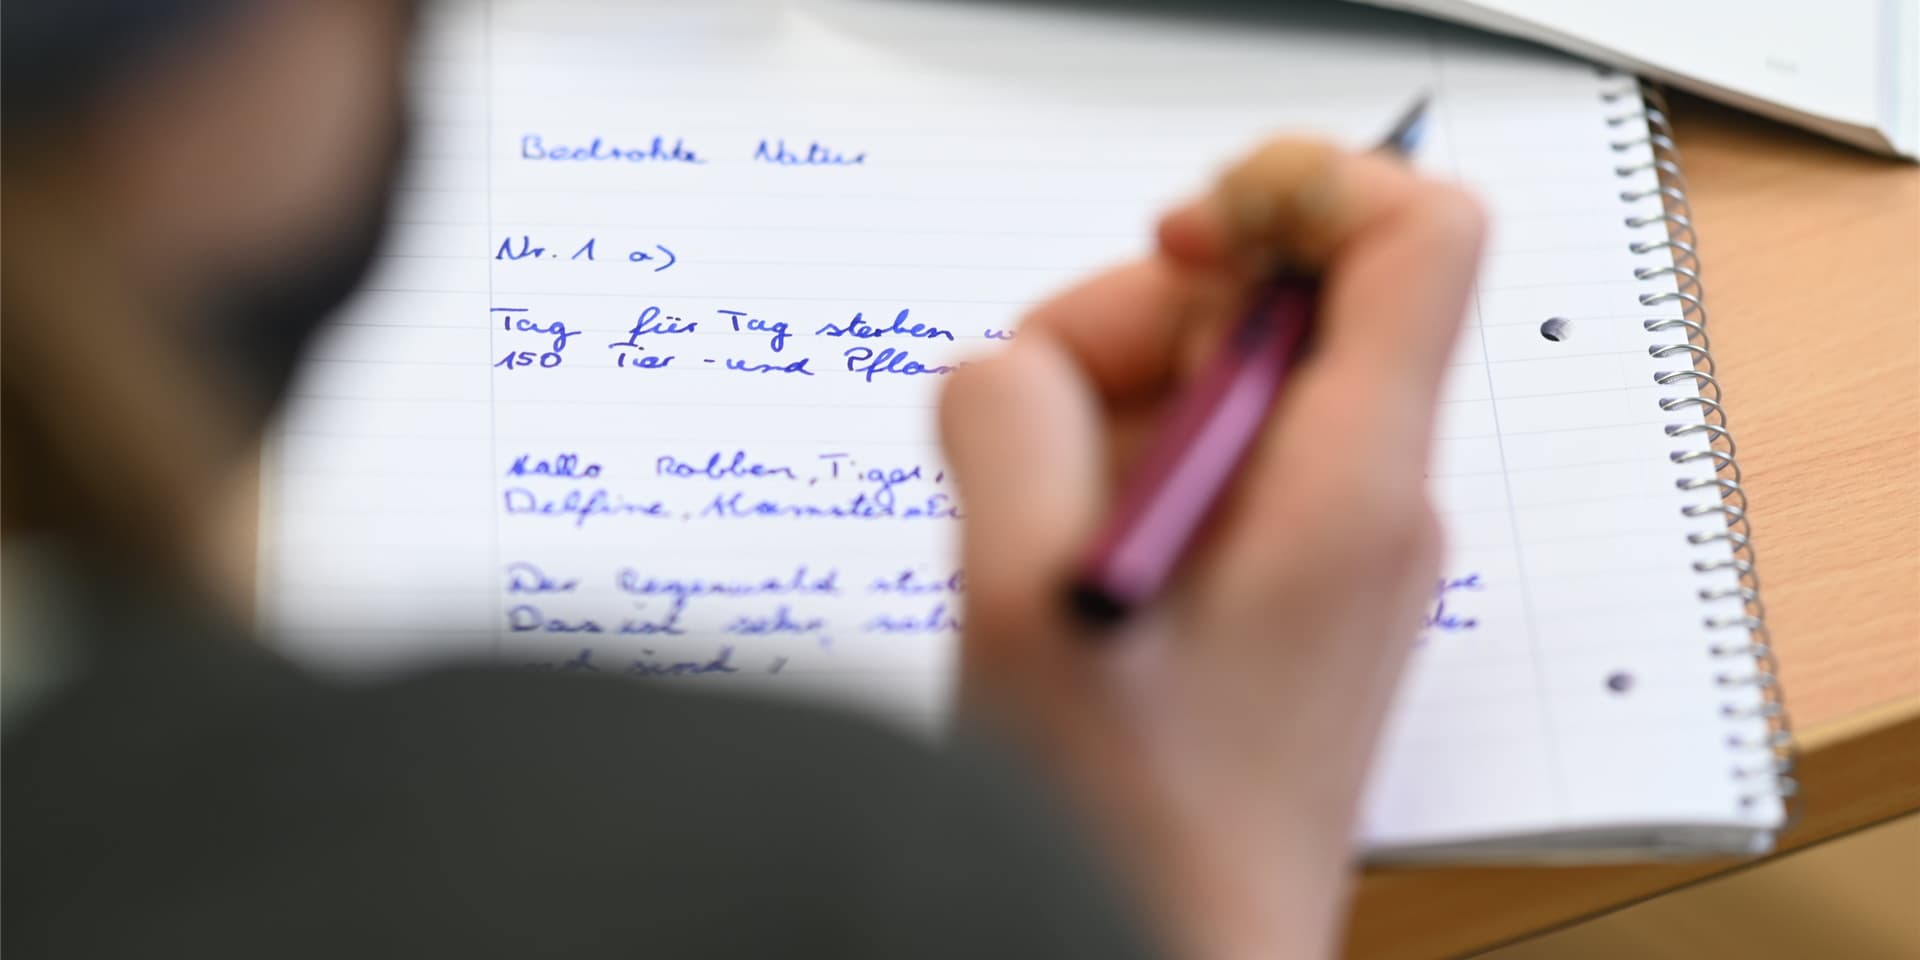 Bedrohte Natur
Nr. 1 a)
Tag für Tag sterben
150 Tier - und
Hallo Robben, Tiger,
Delfine, Hamster
Der Regenwald
Das ist sehr, sehr
und sind